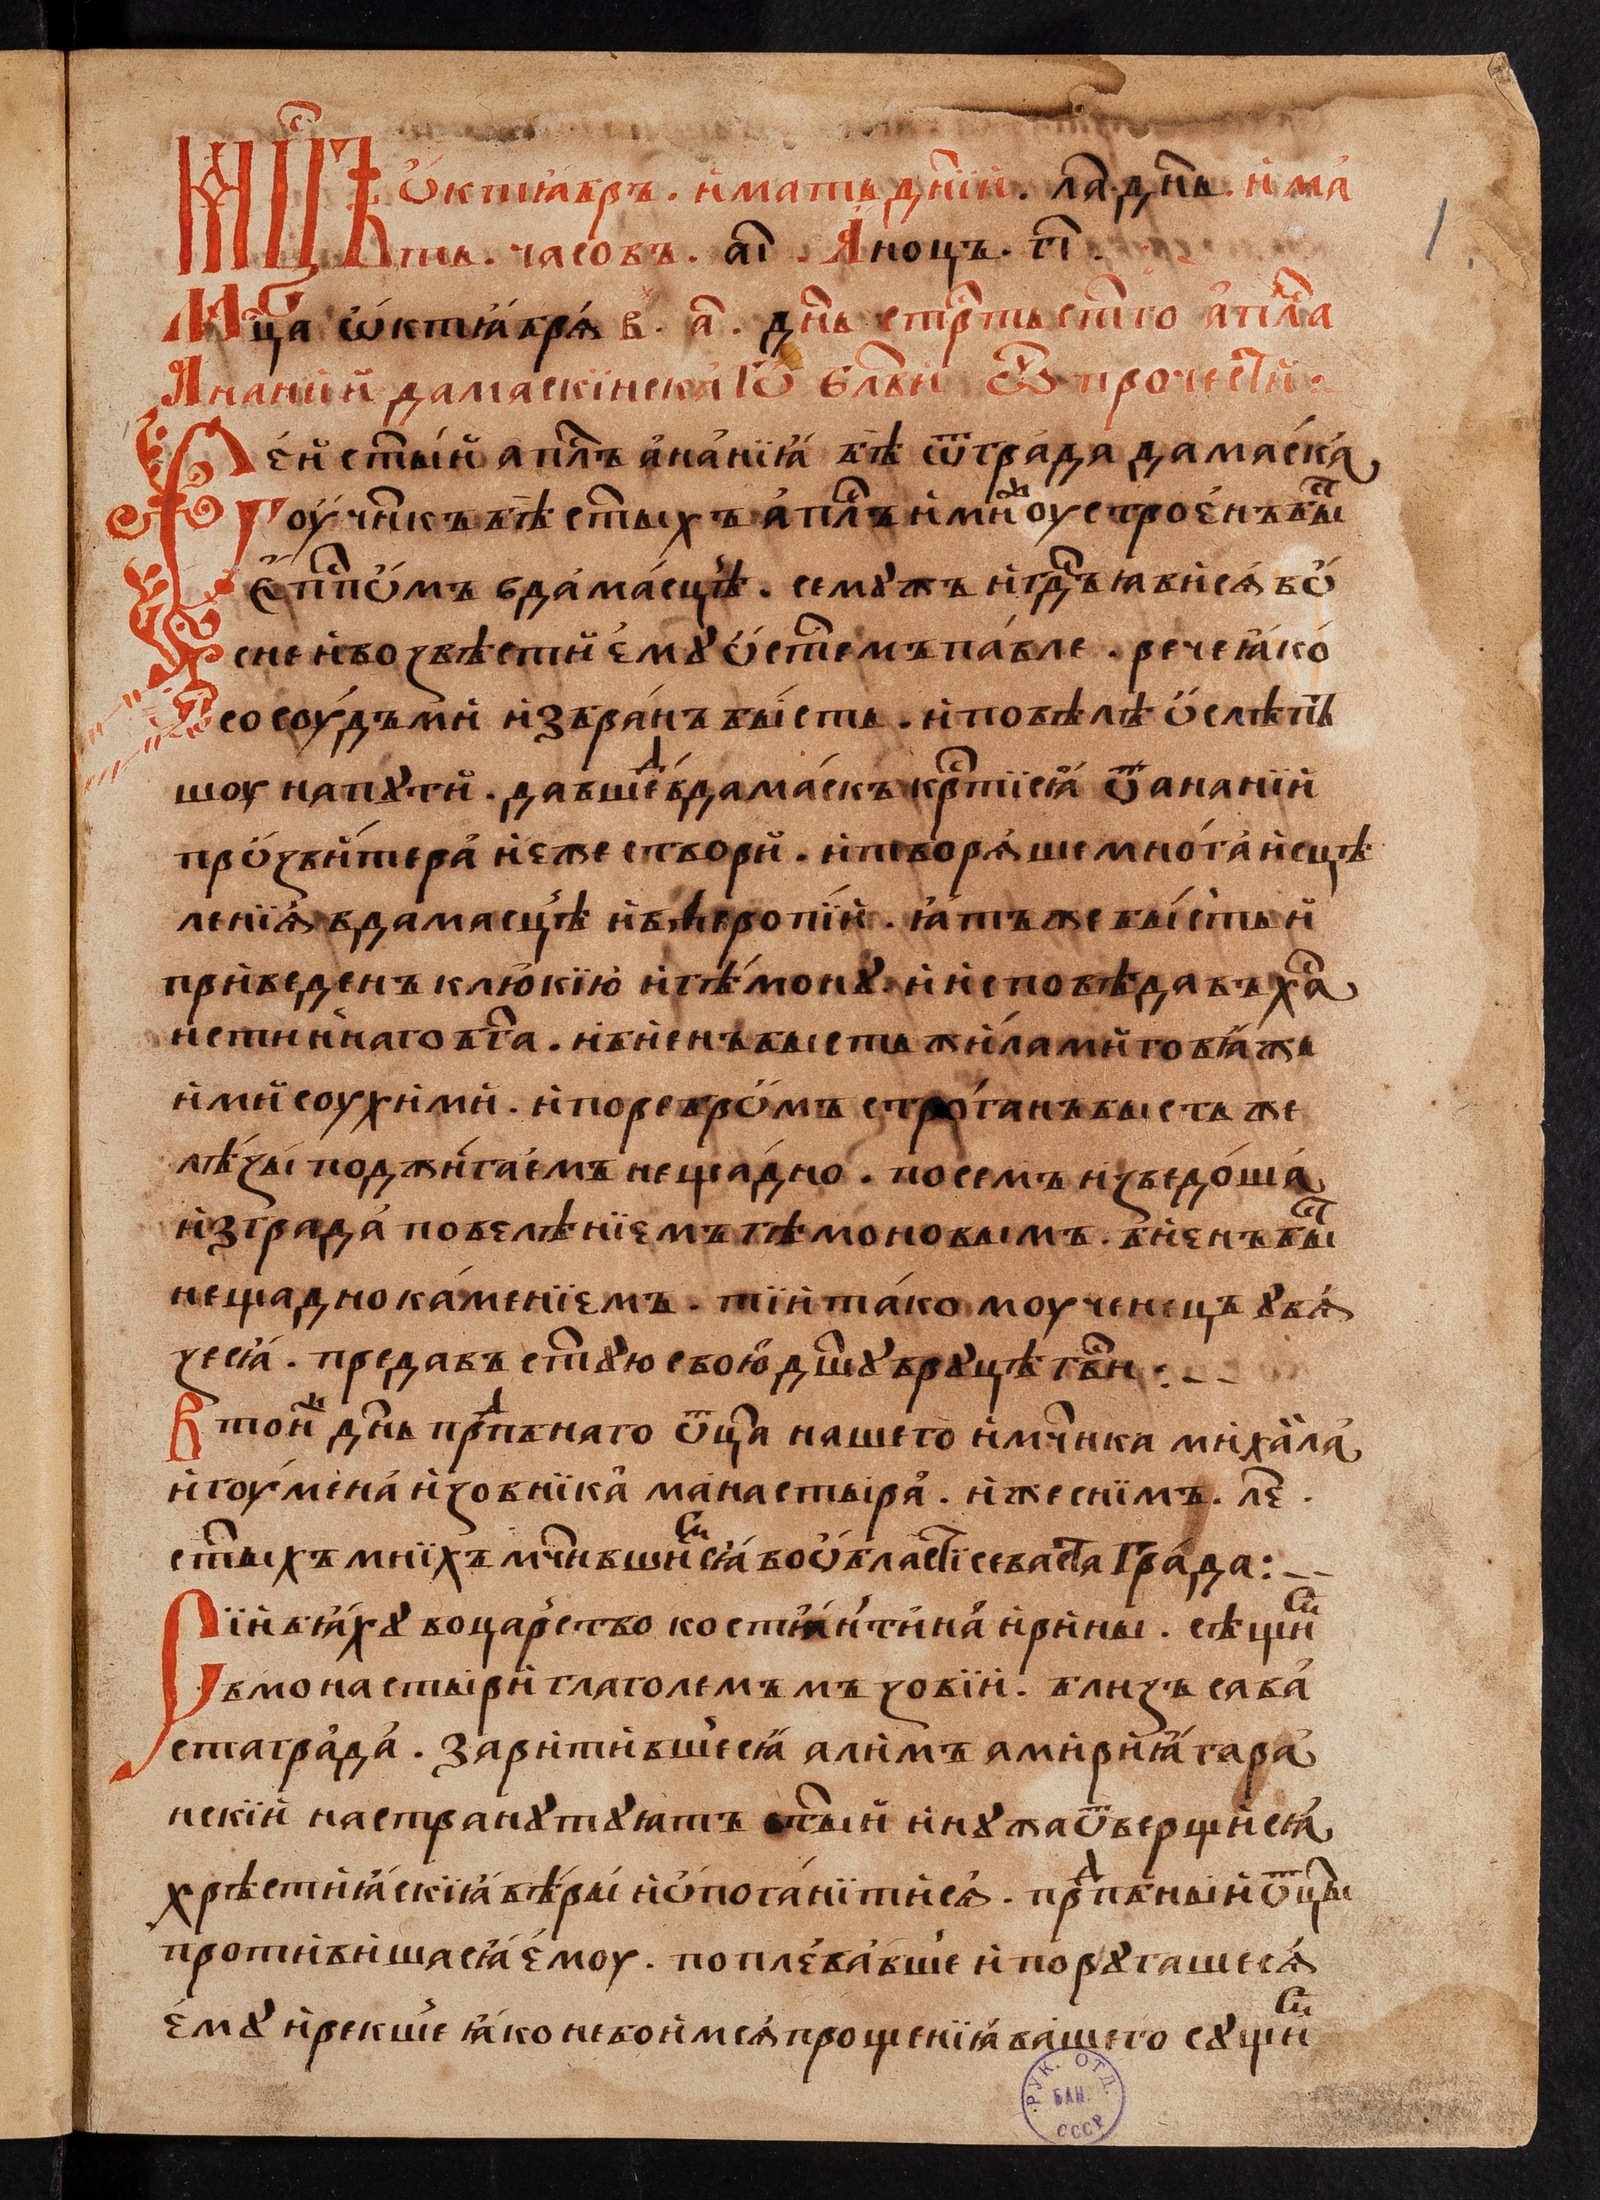 мⷭ҇цъ ѻ҆ктѧ҆́брь . и҆мать дні́и . ла҃ . днь . и҆ма
ть . часовъ . аі҃ . А҆ нощь . гі҃ .
Мⷭ҇ца ѡ҆ктѧ҆бря̀ в . а҃ . днь стртьстго а҆плⷭ҇а
А҆нанїи дамаскїнска́го ѻ҆ . бл҃ви ѿ прочести :
Се́й ст҃ы́й апⷭ҇лъ а҆на́нїꙗ бѣ ѿ гра́да дама́ска
оу҆чн҃къ бѣ ст҃ыхъ а҆пⷭ҇лъ и҆ми оустрое́нъ бы
є҆пⷭ҇пѻ҆мъ вдама́сцѣ . семꙋжъ и҆ гдⷭ҇ъ ꙗвисѧ̀ во
сне и҆возвѣсти є҆мꙋ ѻ҆ст҃емъ па́вле . рече ꙗ҆ко
сосоу́дъ ми и҆збра́нъ бы́сть . и҆ повѣлѣ ѻ҆слѣпь
шоу напꙋти . давше вдама́скъ крⷭ҇тїсѧ̀ ѿ ананїи
про́звитера и҆еже створи . и҆творѧ̀ше мно́га и҆сцѣ
ленїѧ̀ вдамасцѣ и҆ въ иеропїи . ꙗ҆тъже бы́сть и҆
приведенъ клю́кїю и҆гѣ́монꙋ . и҆ и҆сповѣдавъ хⷭ҇а
истиннаго бг҃а . и҆ биенъ бысть жи́лами говѧ́жьи
и҆ми соухи́ми . и҆ поребро́мъ стро́ганъ бысть же
лѣ́зы поджига́емъ нещадно . посемъ и҆зведо́ша
и҆зграда повелѣнїемъ гѣмоновымъ . биенъ бы
нещадно ка́менїемъ . тїи та́ко моученецъ ꙋвѧ̀
зесѧ̀ . предавъ ст҃ꙋю свою дш҃ꙋ врꙋцѣ гвⷭ҇и :~
Втои днь прⷣпбнаго ѿца нашего и҆мчн҃ка миха́ила
и҆гоу́мена и҆зовника манастыра . и҆же сни́мъ . лѕ .
ст҃ыхъ мнїхъ мч҃ившисѧ̀ воѻ҆́бластї севаста гра́да :~
Сїи бѧ́хꙋ воца́рство костѧнти́на и҆рины . сѣщи
вмонастыри глаголемъмъ зовїи . близъ сава
стаграда . зарити́вшесѧ̀ алимъ амирѧ́ гара
нскїи настранꙋ тꙋ ꙗтъ ст҃ыи и҆ нꙋжа ѿвергщи сѧ̀
хрѣстиꙗ́нскїꙗ вѣ́ры и҆ ѻ҆пога́нїтисѧ̀ . прⷣпбныи ѿцы
противишасѧ̀ є҆моу . поплева́вше и҆порꙋгашесѧ̀
є҆мꙋ и҆рекше ꙗ҆ко небоимсѧ̀ прощенїѧ̀ ва́шего сꙋщи
РУК. ОТД.
БАН.
СССР
1.